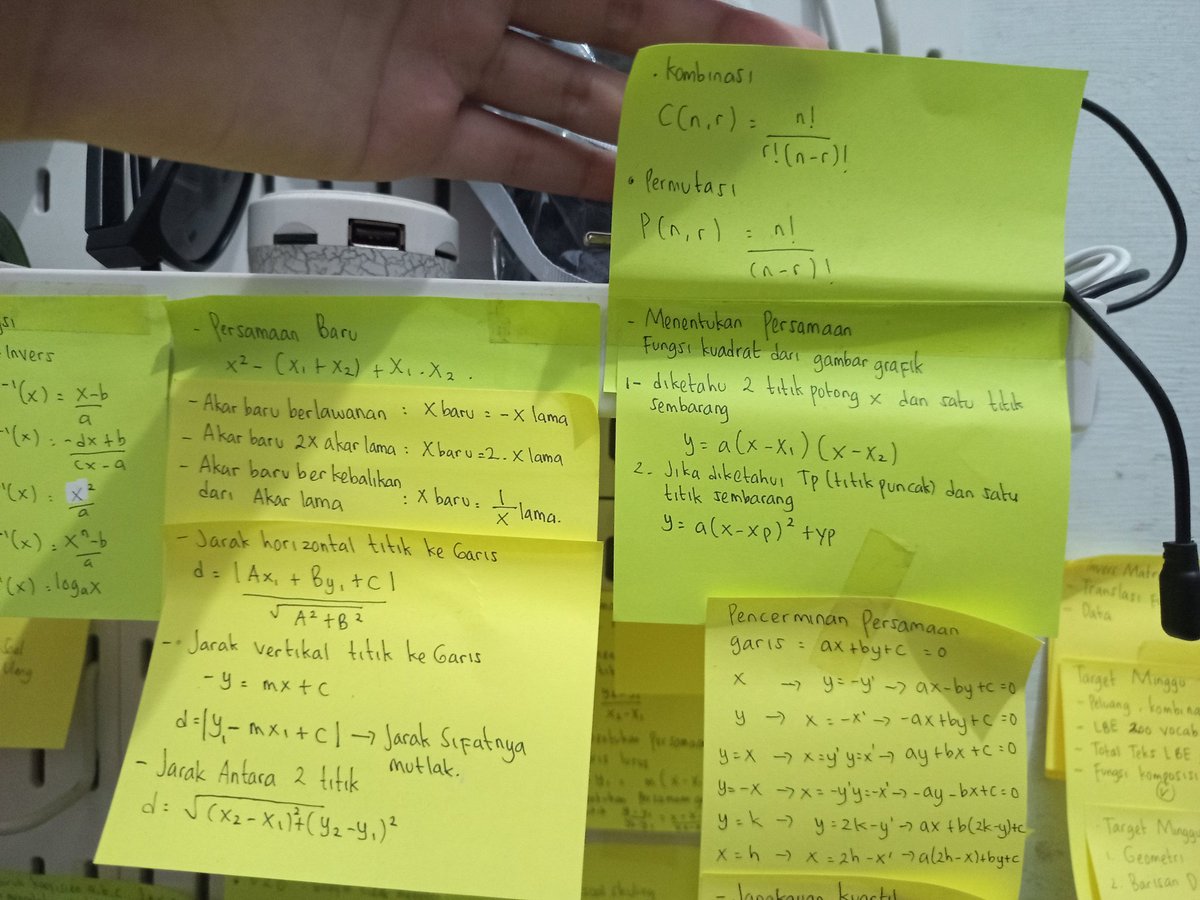 Invers
⁻¹(x) = x-b/a
⁻¹(x) = -dx+b/cx-a
⁻¹(x) = x²/a
⁻¹(x) = xⁿ-b/a
⁻¹(x) = logₐx
- Persamaan Baru
x² - (x₁ + x₂) + x₁ . x₂ .
- Akar baru berlawanan : X baru = -x lama
- Akar baru 2x akar lama : X baru = 2 . x lama
- Akar baru berkebalikan
dari Akar lama : X baru = 1/x lama.
- Jarak horizontal titik ke Garis
d = |Ax₁ + By₁ + C| / √A² + B²
- Jarak vertikal titik ke Garis
- y = mx + c
d = |y₁ - mx₁ + C| → Jarak Sifatnya
mutlak.
- Jarak Antara 2 titik
d = √(x₂ - x₁)² + (y₂ - y₁)²
• Kombinasi
C(n,r) = n! / r!(n-r)!
• Permutasi
P(n,r) = n! / (n-r)!
- Menentukan Persamaan
Fungsi kuadrat dari gambar grafik
1- diketahu 2 titik potong x dan satu titik
sembarang
y = a(x-x₁) (x-x₂)
2. Jika diketahui Tp (titik puncak) dan satu
titik sembarang
y = a(x-xp)² + yp
Pencerminan Persamaan
garis = ax+by+c = 0
x → y = -y' → ax-by+c=0
y → x = -x' → -ax+by+c=0
y=x → x=y' y=x' → ay+bx+c=0
y=-x → x=-y' y=-x' → -ay-bx+c=0
y=k → y=2k-y' → ax+b(2k-y)+c
x=h → x=2h-x' → a(2h-x)+by+c
- Jangkauan kuartil
Invers Matr
- Translasi
- Data
Target Minggu
- Peluang, kombina
- LBE 200 vocab
- Total Teks LBE
- Fungsi komposisi
- Target Minggu
1. Geometri
2. Barisan D